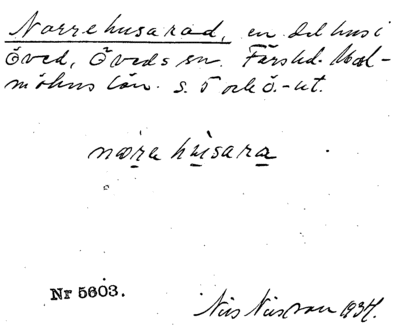 Norrehusarad, en del hus i
Öved, Öveds sn. Färs hd. Mal-
möhus län. s. T och ö.-ut.
nærahusara
Nr 5603.
Nils Nilsson 1934.